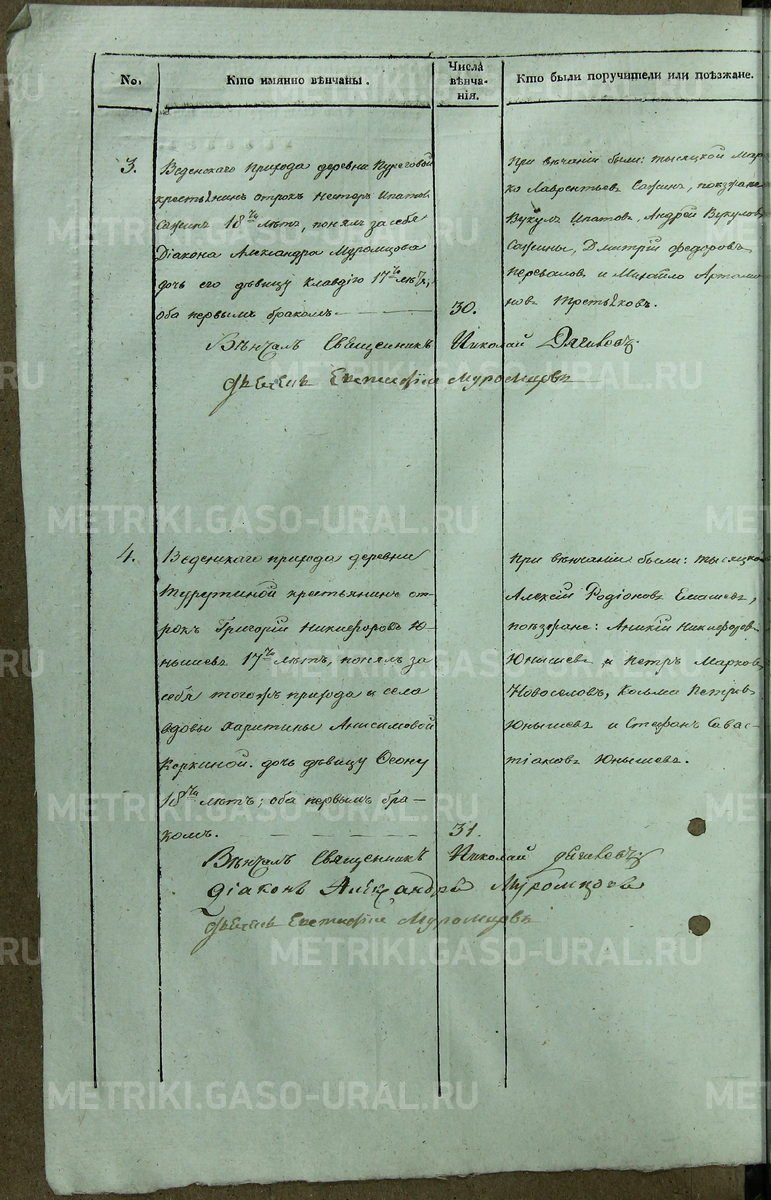 No.
Кто имянно вѣнчаны.
Числа
вѣнча-
нія.
Кто были поручители или поѣзжане.
3.
Веденскаго прихода деревни
крестьянинъ отрокъ Нестеръ Ипатовъ
Сажинъ 18ти лѣтъ, понялъ за себя
Діакона Александра Муромцова
дочь его дѣвицу Клавдію 17ти лѣтъ;
оба первымъ бракомъ.
30.
При вѣчаніи были: тысяцкой Мар-
ко Лаврентьевъ Сажинъ, поѣзжане
Вукулъ Ипатовъ, Андрей Вукуловъ
Сажины, Дмитрій Федоровъ
Переваловъ и Михайло Артамо-
новъ Третьяковъ.
Вѣнчалъ Священникъ Николай Дягилевъ
Муромцовъ
4.
Веденскаго прихода деревни
крестьянинъ от-
рокъ Григорій Никифоровъ Ю-
нышевъ 17ти лѣтъ, понялъ за
себя тогожъ прихода и села
вдовы Харитины Анисимовой
Коркиной дочь дѣвицу
18ти лѣтъ; оба первымъ бра-
комъ.
31.
При вѣнчаніи были: тысяцкой
Алексѣй Родіоновъ
поѣзжане: Аникій Никифоровъ
Юнышевъ и Петръ Марковъ
Новоселовъ, Козьма Петровъ
Юнышевъ и Стефанъ Савас-
тіановъ Юнышевъ.
Вѣнчалъ Священникъ Николай Дягилевъ
Діаконъ Александръ Муромцовъ
Муромцовъ
METRIKI.GASO-URAL.RU